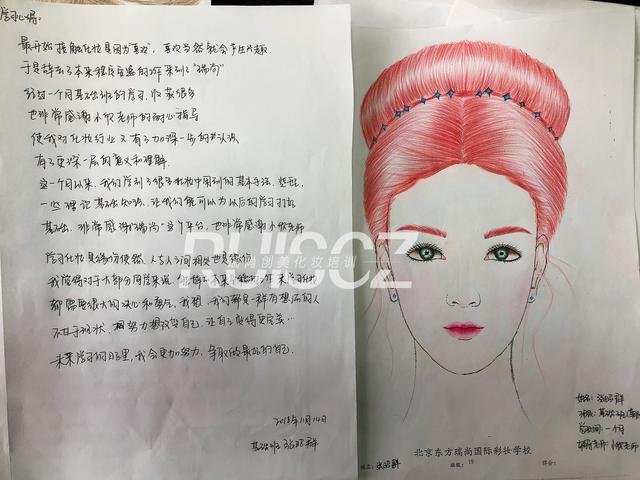 学习心得:
最开始接触化妆是因为喜欢,喜欢当然就会产生兴趣.
于是辞去了本来稳定的工作来到了"瑞尚"
经过一个月基础班的学习,收获很多
也非常感谢小倪老师的耐心指导
使我对化妆行业又有了加深一步的认识
有了更深一层的意义和理解.
这一个月以来,我们学到了很多化妆中用到的基本手法
一些理论基础知识,让我们能可以为以后的学习打好
基础,非常感谢"瑞尚"这个平台,也非常感谢小倪老师
学习化妆是缘分使然,人与人之间相处也是缘分
我觉得对于大部分同学来说,放掉本来稳定的工作来学习化妆
都需要很大的决心和勇气,我想,我们都是一群有想法的人
不甘于现状,想努力改变自己,让自己变得更完美…
未来学习的日子里,我会更加努力,争取做最好的自己.
2018年11月14日
基础班 张昭群
RUISCZ
尚创美化妆培训
姓名:张昭群
班级:基础班
学习时间:一个月
辅导老师:小倪老师
北京东方瑞尚国际彩妆学校
姓名:张昭群 班级:19 得分: